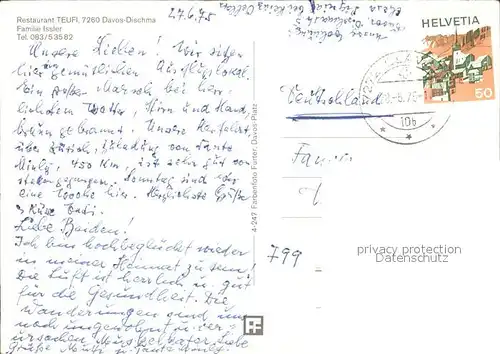 Restaurant TEUFI, 7260 Davos-Dischma
Familie Issler
Tel. 083/53582
27.6.75
Unsere Lieben! Wir sitzen
hier gemütlichen Ausflugslokal.
Ein großer Marsch bei herr-
lichstem Wetter, Hirn und Hand,
braun gebrannt. Unsere Herfahrt,
über Zürich, Einladung von Tante
Minly, 400 km, ist sehr gut von
statten gegangen. Sonntag sind wir
eine Woche hier. Herzlichste Grüße
Liebe Beiden!
Ich bin hochbeglückt wieder
in meiner Heimat zu sein!
Die Luft ist herrlich u. gut
für die Gesundheit. Die
Wanderungen sind uns
noch ungewohnt u. ver-
ursachen Muskelkater. Liebe
Grüße
4-247 Farbenfoto Furter, Davos-Platz
HELVETIA
50
Deutschland
10b
799
privacy protection
Datenschutz